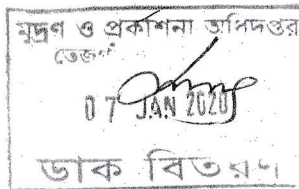 মুদ্রণ ও প্রকাশনা অধিদপ্তর
07 JAN 2020
ডাক বিতরণ